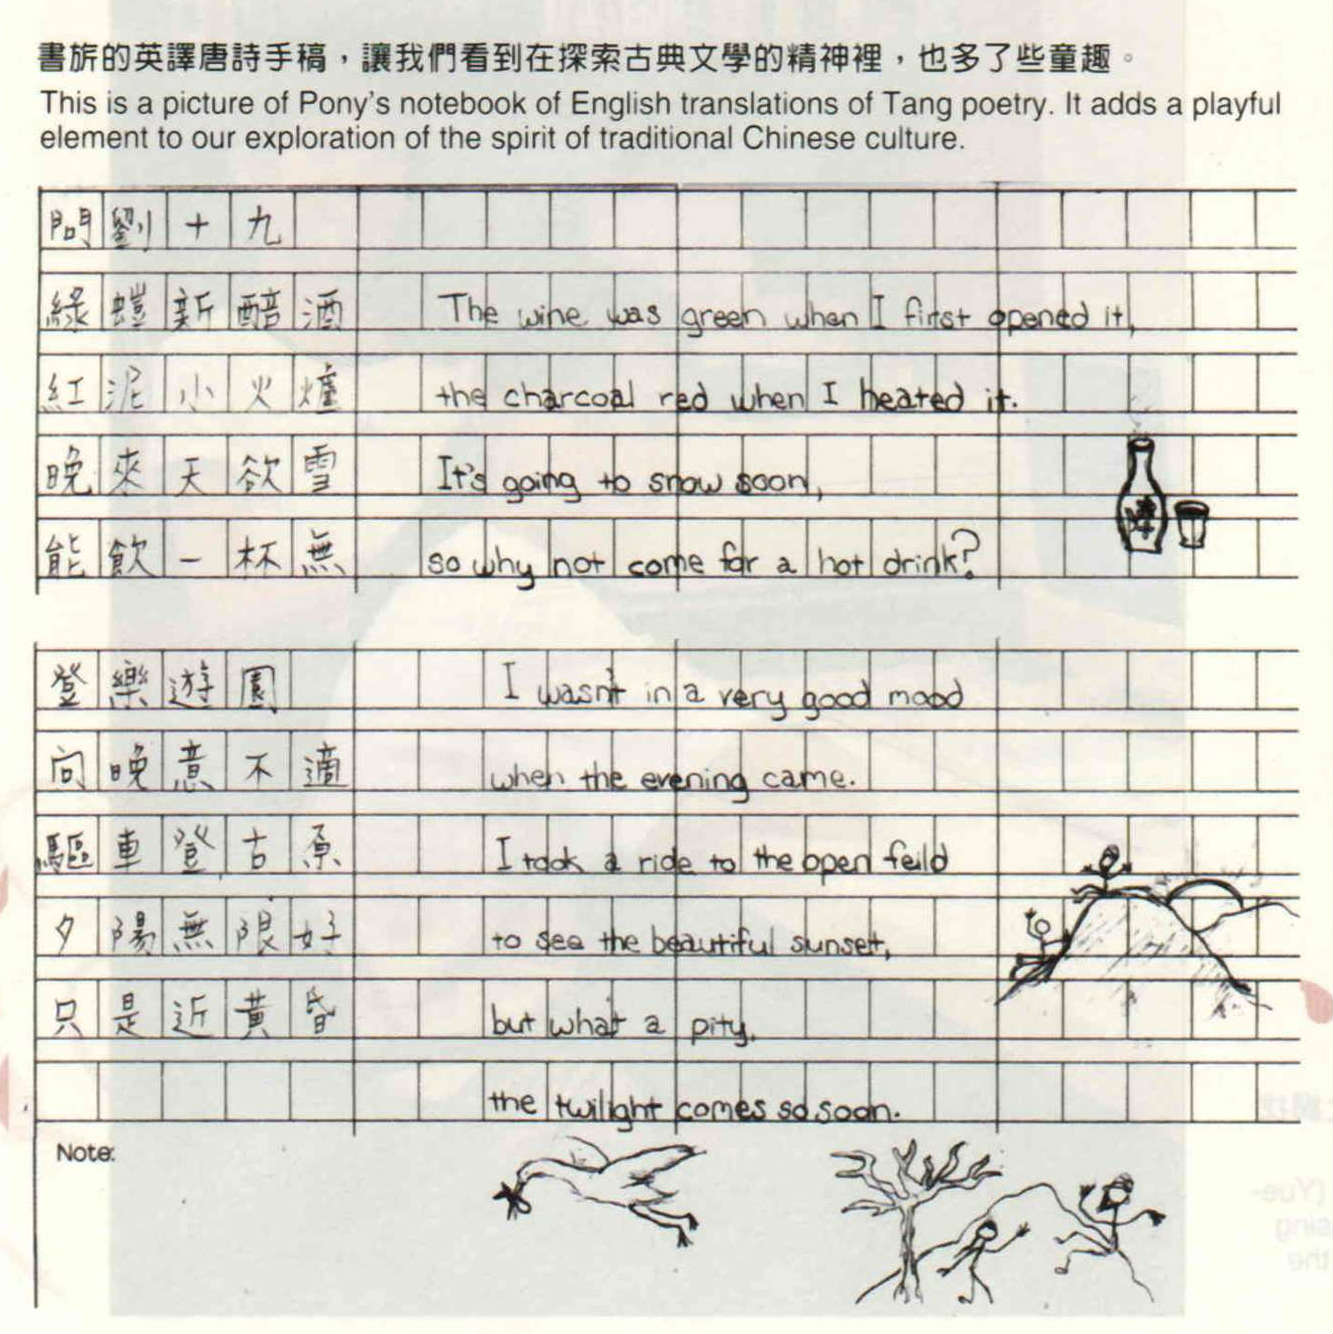 書旂的英譯唐詩手稿，讓我們看到在探索古典文學的精神裡，也多了些童趣。
This is a picture of Pony's notebook of English translations of Tang poetry. It adds a playful
element to our exploration of the spirit of traditional Chinese culture.
問劉十九
綠螘新醅酒 The wine was green when I first opened it,
紅泥小火爐 the charcoal red when I heated it.
晚來天欲雪 It's going to snow soon,
能飲一杯無 so why not come for a hot drink?
登樂遊園 I wasn't in a very good mood
向晚意不適 when the evening came.
驅車登古原 I took a ride to the open feild
夕陽無限好 to see the beautiful sunset,
只是近黃昏 but what a pity,
the twilight comes so soon.
Note: